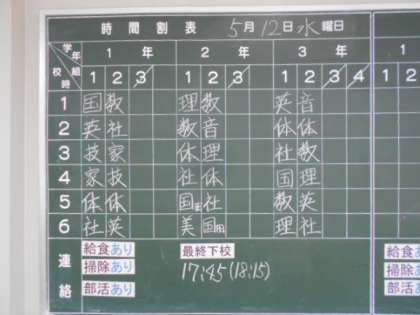 時間割表 5月12日水曜日
学年 1年 2年 3年 1
組 校時 1 2 3 1 2 3 1 2 3 4 1
1 国 数 理 数 英 音
2 英 社 数 音 体 体
3 技 家 体 理 社 数
4 家 技 社 体 国 理
5 体 体 国 社 数 英
6 社 英 美 国 理 社
連絡 給食あり 最終下校 給食
掃除あり 17:45(18:15) 掃除あ
部活あり 部活あ